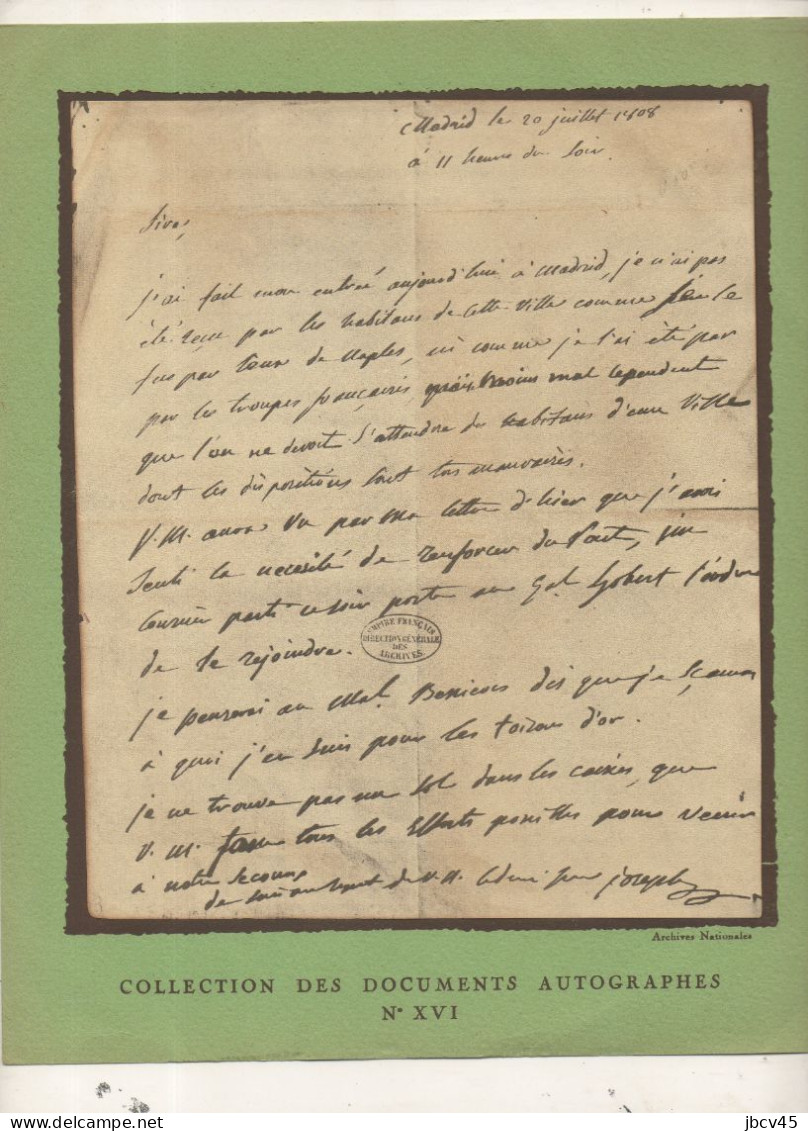 Madrid le 20 juillet 1808
à 11 heures du soir.
Sire,
j'ai fait mon entrée aujourd'hui à Madrid, je n'ai pas
été reçu par les habitans de cette ville comme je le
fus par ceux de Naples, ni comme je l'ai été par
par les troupes françaises, moins mal cependant
que l'on ne devoit s'attendre des habitans d'une ville
dont les dispositions sont très mauvaises.
V. M. aura vu par ma lettre d'hier que j'avois
senti la necésité de renforcer du Pont, un
courier parti ce soir porte au Gal Gobert l'ordre
de le rejoindre.
EMPIRE FRANÇAIS
DIRECTION GÉNÉRALE
DES
ARCHIVES
je penserai au Mal Bessieres dès que je sçaurai
à quoi j'en suis pour les toison d'or.
je ne trouve pas un sol dans les caises, que
V. M. fasse tous les efforts possibles pour venir
à notre secours
de V. M. joseph
Archives Nationales
COLLECTION DES DOCUMENTS AUTOGRAPHES
N° XVI
delcampe.net
jbcv45